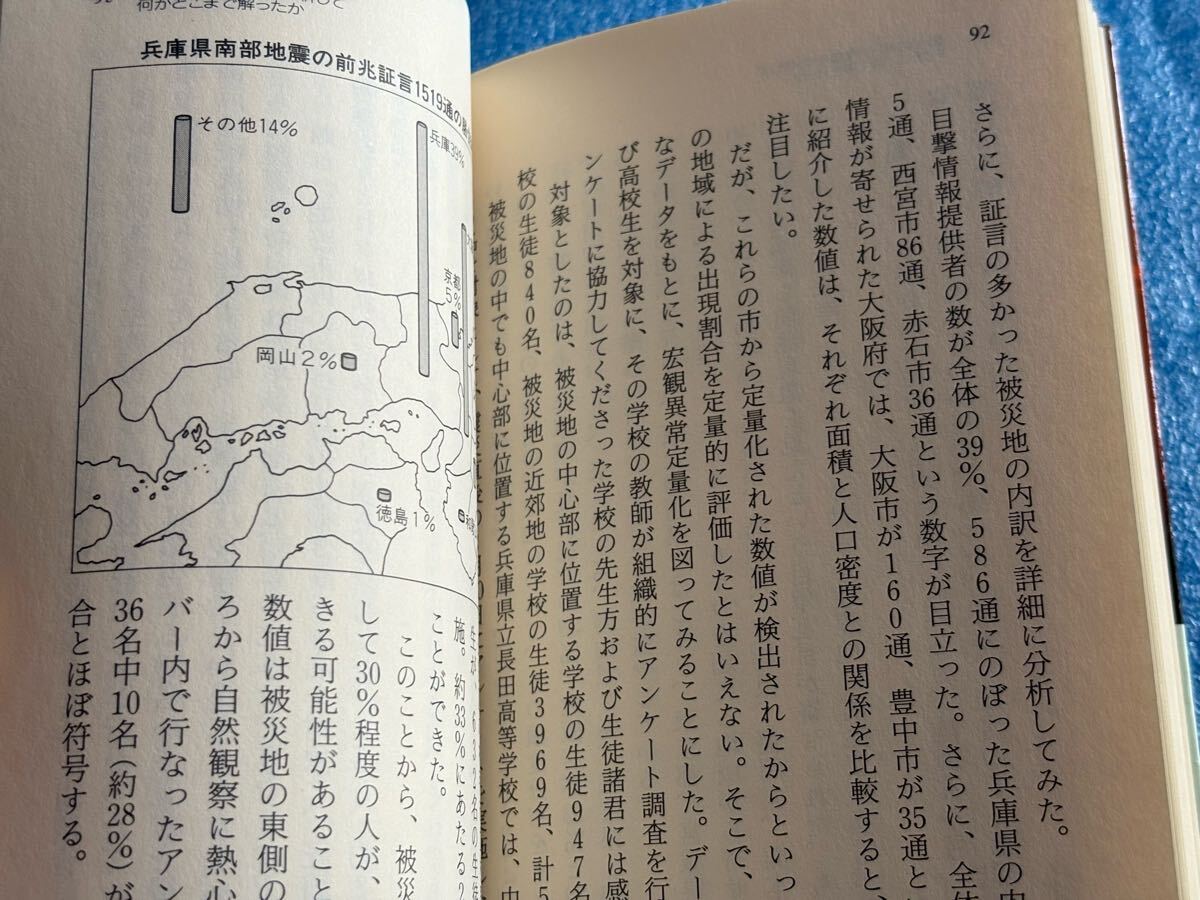 92
さらに、証言の多かった被災地の内訳を詳細に分析してみた。
目撃情報提供者の数が全体の39%、586通にのぼった兵庫県の内
5通、西宮市86通、赤石市36通という数字が目立った。さらに、全体
情報が寄せられた大阪府では、大阪市が160通、豊中市が35通と
に紹介した数値は、それぞれ面積と人口密度との関係を比較すると、
注目したい。
だが、これらの市から定量化された数値が検出されたからといっ
の地域による出現割合を定量的に評価したとはいえない。そこで、
なデータをもとに、宏観異常定量化を図ってみることにした。デー
び高校生を対象に、その学校の教師が組織的にアンケート調査を行
ンケートに協力してくださった学校の先生方および生徒諸君には感
対象としたのは、被災地の中心部に位置する学校の生徒947名
校の生徒840名、被災地の近郊地の学校の生徒3969名、計5
被災地の中でも中心部に位置する兵庫県立長田高等学校では、中
何がどこまで解ったか
兵庫県南部地震の前兆証言1519通の
その他14%
兵庫39%
京都
5%
岡山2%
徳島1%
632名の生徒
施。約33%にあたる2
ことができた。
このことから、被災
して30%程度の人が、
きる可能性があること
数値は被災地の東側の
ろから自然観察に熱心
バー内で行なったアン
36名中10名(約28%)が
合とほぼ符号する。